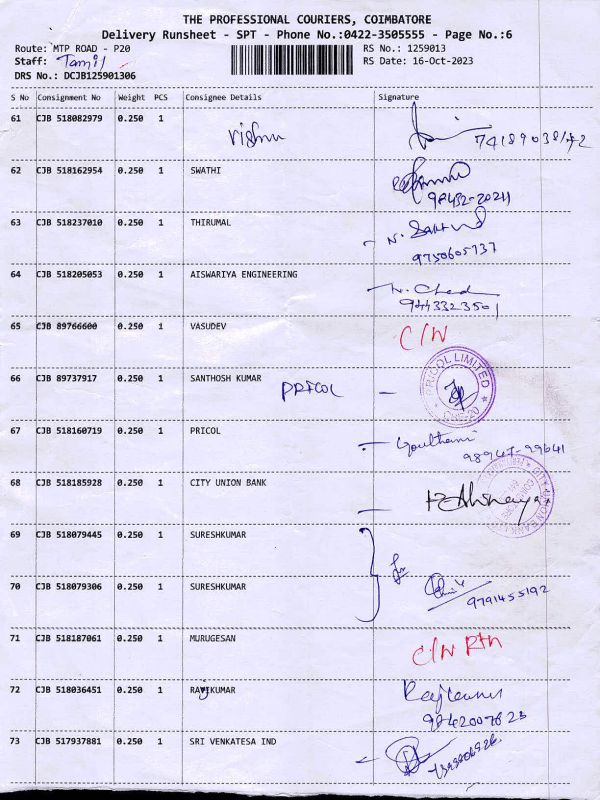 THE PROFESSIONAL COURIERS, COIMBATORE
Delivery Runsheet - SPT - Phone No.:0422-3505555 - Page No.:6
Route: MTP ROAD - P20 RS No.: 1259013
Staff: Tamil RS Date: 16-Oct-2023
DRS No.: DCJB125901306
S No Consignment No Weight PCS Consignee Details Signature
61 CJB 518082979 0.250 1 Vishnu
62 CJB 518162954 0.250 1 SWATHI
98432-20211
63 CJB 518237010 0.250 1 THIRUMAL
9750605737
64 CJB 518205053 0.250 1 AISWARIYA ENGINEERING
9443323501
65 CJB 89766600 0.250 1 VASUDEV C/N
66 CJB 89737917 0.250 1 SANTHOSH KUMAR PRICOL PRICOL LIMITED
67 CJB 518160719 0.250 1 PRICOL
98947-99641
68 CJB 518185928 0.250 1 CITY UNION BANK
69 CJB 518079445 0.250 1 SURESHKUMAR
70 CJB 518079306 0.250 1 SURESHKUMAR
9791455192
71 CJB 518187061 0.250 1 MURUGESAN C/N RTN
72 CJB 518036451 0.250 1 RAJKUMAR Rajkumar
9842007623
73 CJB 517937881 0.250 1 SRI VENKATESA IND